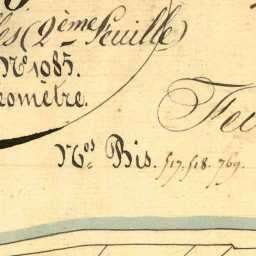 les (2ème Feuille)
No 1085.
eomètre.
Feu
Nos Bis. 517. 518. 769.